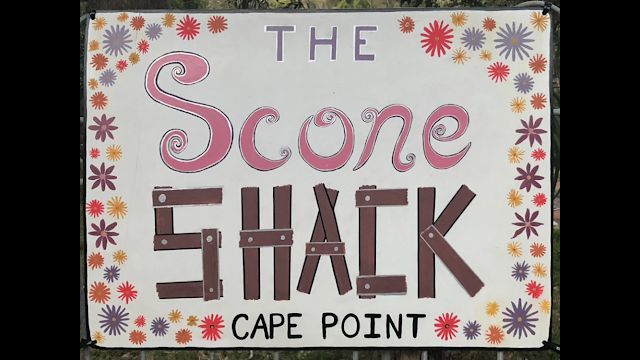 THE
Scone
SHACK
CAPE POINT